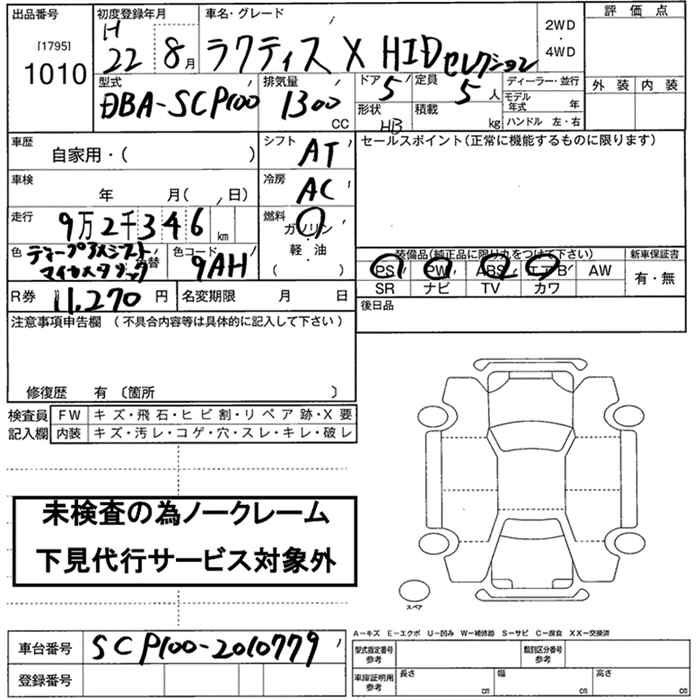 出品番号
[1795]
1010
初度登録年月
H
22 8月
車名・グレード
ラクティス X HIDセレクション
2WD
・
4WD
評価点
外装 内装
型式
DBA-SCP100
排気量
1300
CC
ドア
5
定員
5人
形状
HB
積載
kg
ディーラー・並行
モデル年式 年
ハンドル 左・右
車歴
自家用・( )
シフト
AT
セールスポイント(正常に機能するものに限ります)
車検
年 月( 、日)
冷房
AC
走行
9万2千346km
燃料
ガソリン
・
軽・油
( )
色
マイカメタリック
替
色コード
9AH
装備品(純正品に限り丸をつけて下さい)
新車保証書
PS PW ABS エアB AW
有・無
SR ナビ TV カワ
R券 11,270 円
名変期限 月 日
後日品
注意事項申告欄(不具合内容等は具体的に記入して下さい)
修復歴 有〔箇所 〕
検査員
記入欄
FW キズ・飛石・ヒビ割・リペア跡・X要
内装 キズ・汚レ・コゲ・穴・スレ・キレ・破レ
未検査の為ノークレーム
下見代行サービス対象外
スペア
車台番号 SCP100-2010779
登録番号
A-キズ E-エクボ U-凹み W-補修跡 S-サビ C-腐食 XX-交換済
型式指定番号
参考
類別区分番号
参考
車庫証明用
参考
長さ
cm
幅
cm
高さ
cm